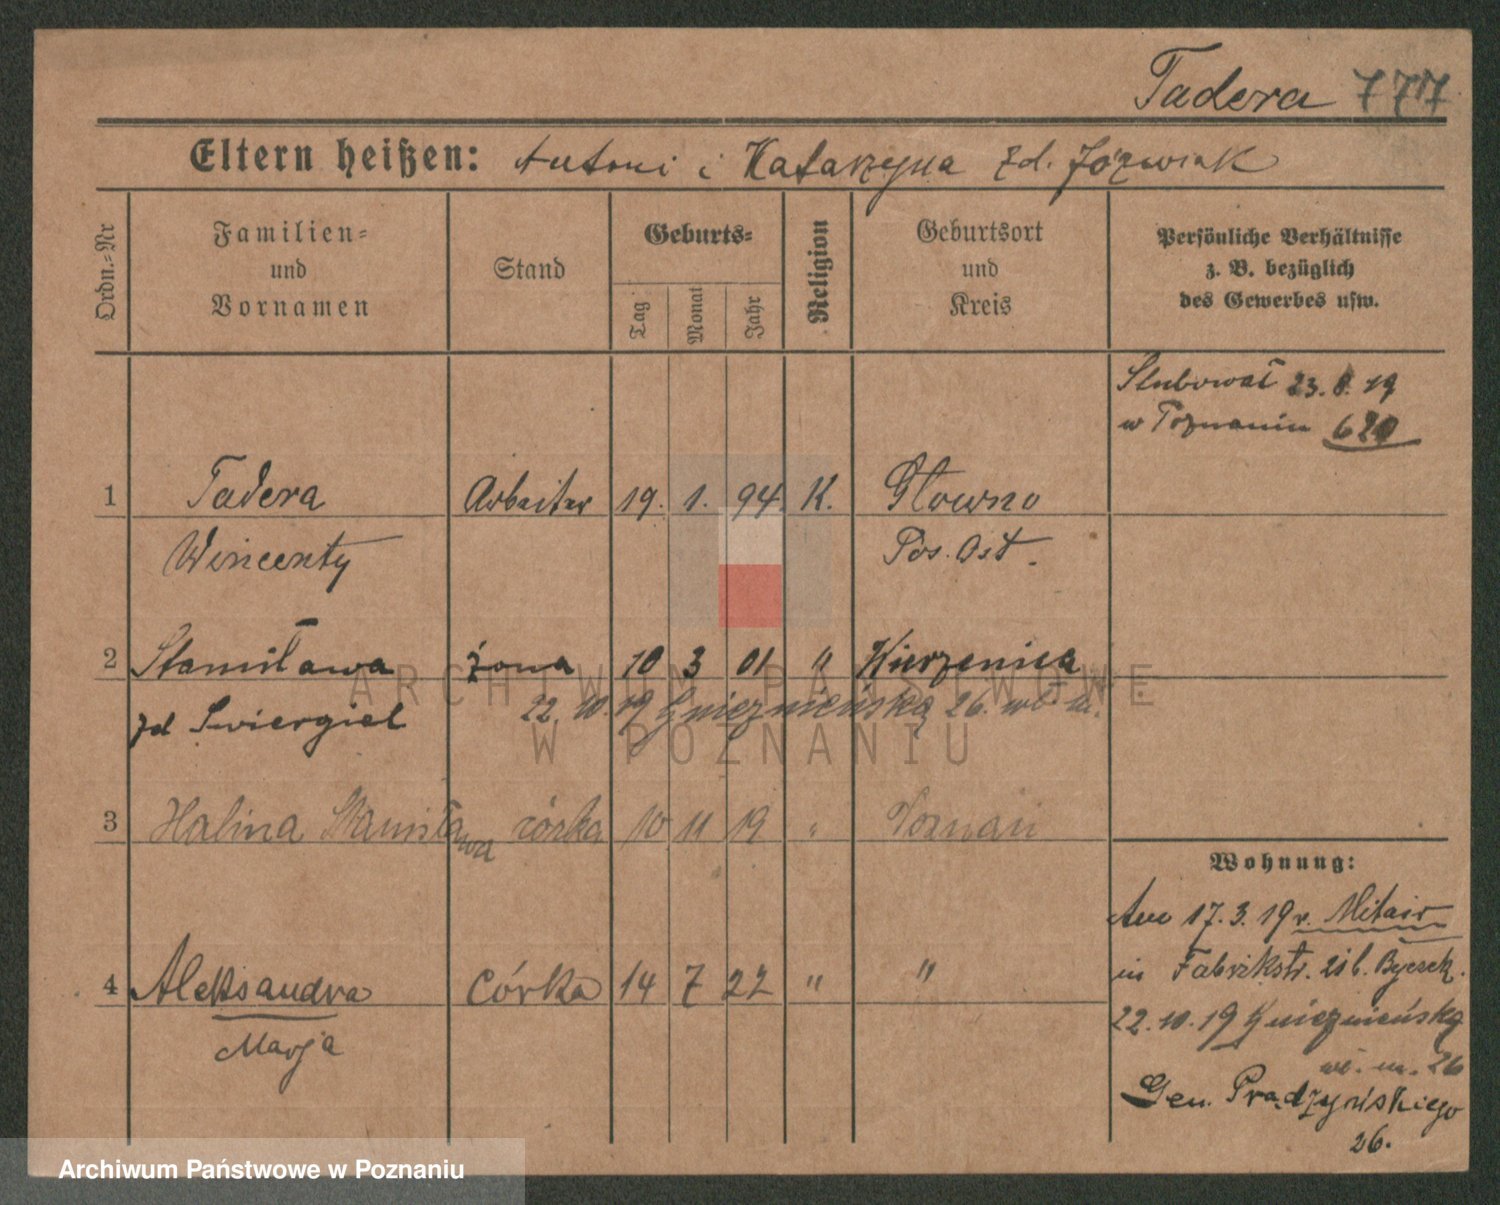 Tadera 777
Eltern heißen: Antoni i Katarzyna zd. Józwiak
Ordn.-Nr
Familien-
und
Vornamen
Stand
Geburts-
Tag
Monat
Jahr
Religion
Geburtsort
und
Kreis
Persönliche Verhältnisse
z. B. bezüglich
des Gewerbes usw.
Slubował 23. 8. 19
w Poznaniu 620
1 Tadera Arbeiter 19. 1. 94. K. Główno
Wincenty Pos. Ost.
2 Stanisława żona 10 3 01 " Kierzenica
zd Swiergiel 22. 10. 19 Gnieznieńska 26. wł. m.
3 Halina Stanisława córka 10 11 19 " Poznań
Wohnung:
Am 17. 3. 19 v. Militair
in Fabrikstr. 21 b.
4 Aleksandra córka 14 7 22 " "
22. 10. 19 Gnieznieńska
Marja
wł. m. 26
Gen. Prądzyńskiego
26.
ARCHIWUM PAŃSTWOWE
W POZNANIU
Archiwum Państwowe w Poznaniu